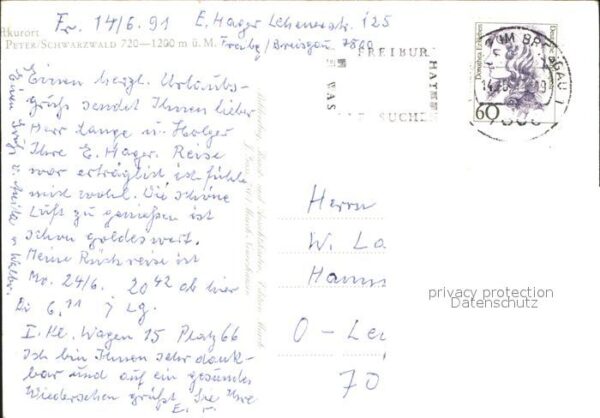 Fr. 14/6. 91 E. Hager Lehenerstr. 125
ftkurort
PETER/SCHWARZWALD 720—1200 m ü. M. Freibg/Breisgau 7800
Einen herzl. Urlaubs-
gruß sendet Ihnen lieber
Herr Lange u. Holger
Ihre E. Hager. Reise
war erträglich ich fühle
mich wohl. Die schöne
Luft zu genießen ist
schon goldeswert.
Meine Rückreise ist
Mo. 24/6. 20 42 ab hier
6,11 Lg.
I. Kl. Wagen 15 Platz 66
Ich bin Ihnen sehr dank-
bar und auf ein gesundes
Wiedersehen grüßt Sie Ihre
E.
Einen Gruß v.
FREIBUR
HAT
WAS
SUCHE
Dorothea Erxleben
60
Herrn
W. La
Hanns
O - Lei
70
privacy protection
Datenschutz